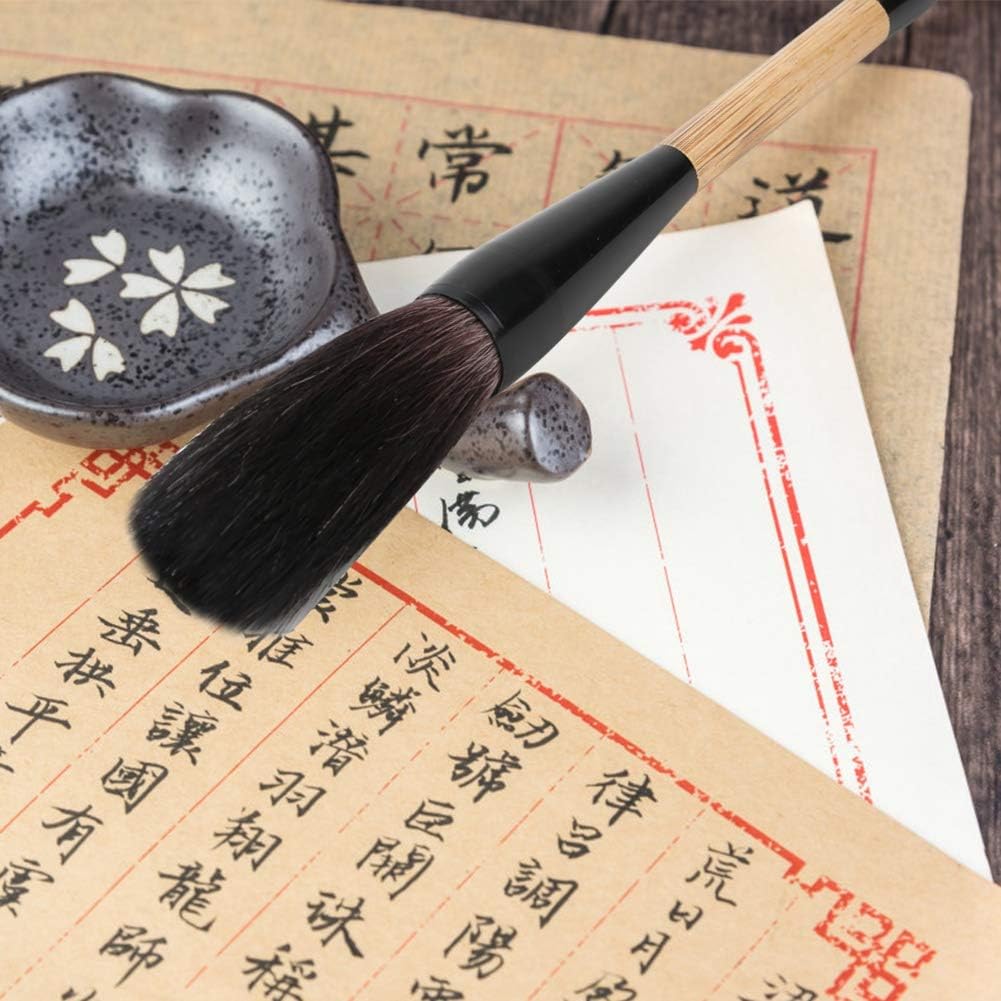 常
道
荒日月
律呂調陽
劒號巨闕珠稱
淡鱗潛羽翔龍師
推位讓國有虞
垂拱平